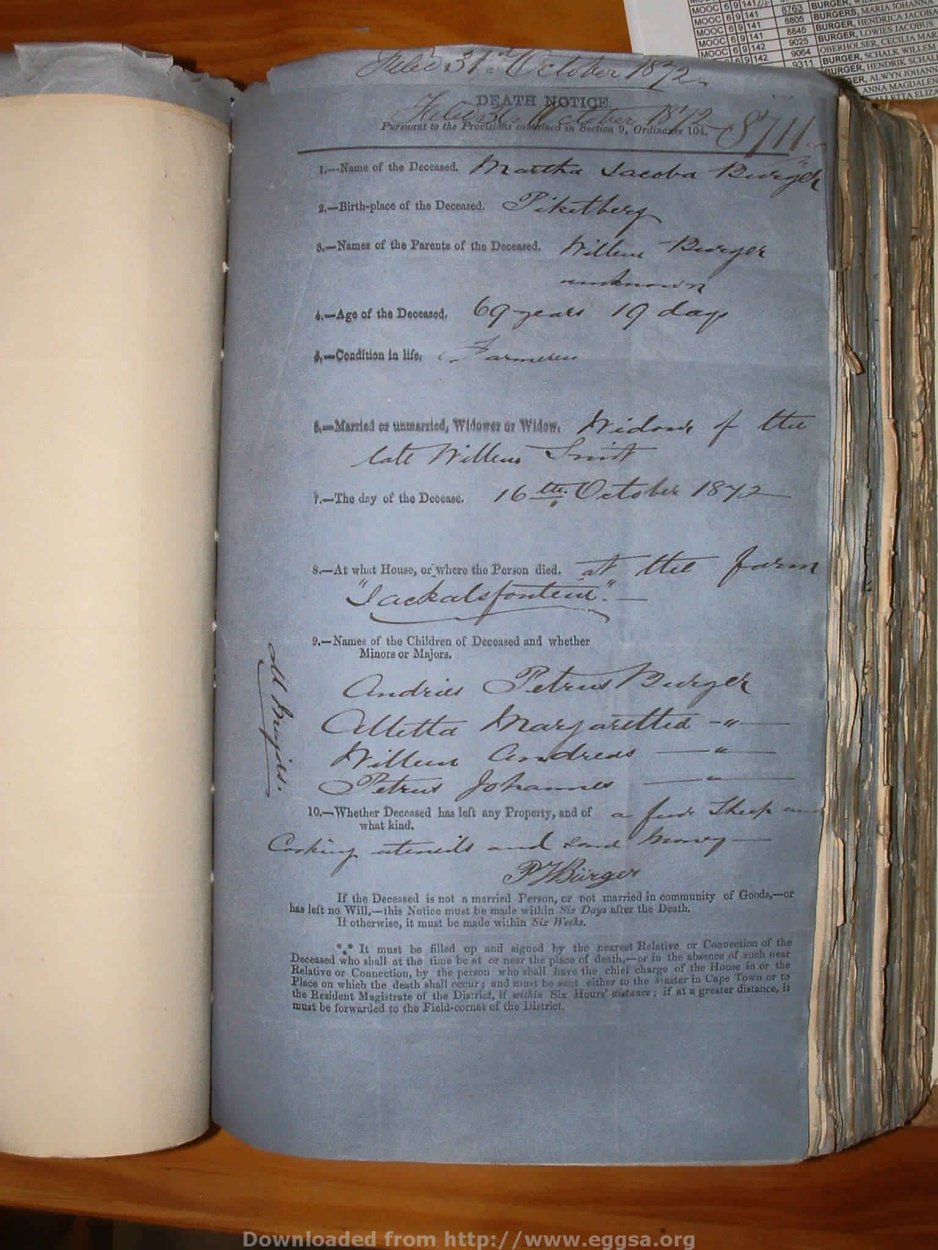 MOOC 6 9 141
MOOC 6 9 141 8763 BURGER,
MOOC 6 9 141 8805 BURGER, MARIA JOHANNA
MOOC 6 9 141 8845 BURGERS, HENDRICA JACOBA
MOOC 6 9 142 9025 BURGER, LOWIES JACOBUS
6 9 142 9064 OBERHOLSER, CECILIA MAR
9311 BURGER, SCHALK WILLEM
BURGER, HENDRIK SCHAL
ER, ALWYN JOHANN
ANNA MAGDALEN
LETTA ELIZA
Filed 31st October 1872
DEATH NOTICE.
October 1872
Pursuant to the Provisions contained in Section 9, Ordinance 104.
8711
1.—Name of the Deceased. Martha Jacoba Burger
2.—Birth-place of the Deceased. Piketberg
3.—Names of the Parents of the Deceased. Willem Burger
unknown
4.—Age of the Deceased. 69 years 19 days
5.—Condition in life, Farmeress
6.—Married or unmarried, Widower or Widow. Widow of the
late Willem Smit
7.—The day of the Decease. 16th October 1872
8.—At what House, or where the Person died. at the farm
"Jackalsfontein".
9.—Names of the Children of Deceased and whether
Minors or Majors.
All Majors.
Andries Petrus Burger
Alletta Margaretha —"—
Willem Andreas —"—
Petrus Johannes —"—
10.—Whether Deceased has left any Property, and of a few Sheep
what kind.
Cooking utensils and some money
Burger
If the Deceased is not a married Person, or not married in community of Goods,—or
has left no Will,—this Notice must be made within Six Days after the Death.
If otherwise, it must be made within Six Weeks.
*** It must be filled up and signed by the nearest Relative or Connection of the
Deceased who shall at the time be at or near the place of death,—or in the absence of such near
Relative or Connection, by the person who shall have the chief charge of the House in or the
Place on which the death shall occur; and must be sent either to the Master in Cape Town or to
the Resident Magistrate of the District, if within Six Hours' distance; if at a greater distance, it
must be forwarded to the Field-cornet of the District.
Downloaded from http://www.eggsa.org